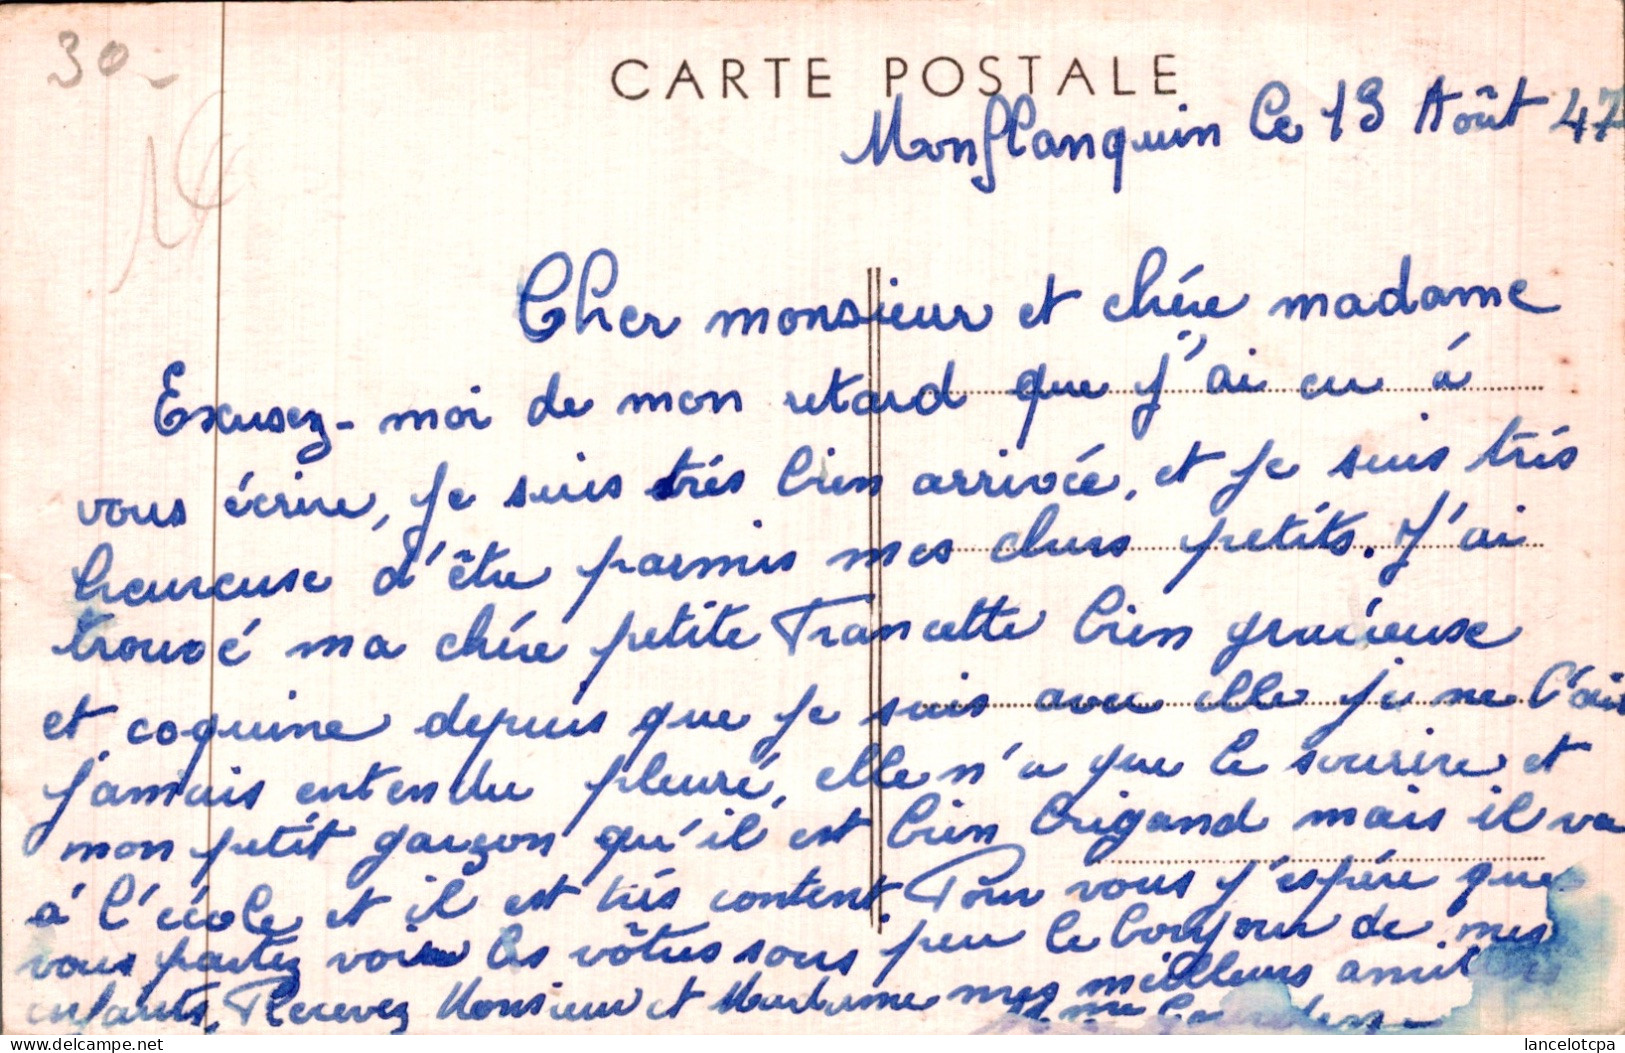 30-
CARTE POSTALE
Monflanquin le 19 Août 47
Cher monsieur et chére madame
Excusez-moi de mon retard que j'ai eu á
vous écrire, je suis trés bien arrivée, et je suis trés
heureuse d'être parmis mes chers petits. J'ai
trouvé ma chére petite Francette bien gracieuse
et coquine depuis que je suis avec elle je ne l'ais
jamais entendu pleuré, elle n'a que le sourire et
mon petit garçon qu'il est bien brigand mais il va
á l'école et il est trés content Pour vous j'espére que
vous partez voir les vôtres sous peu le bonjour de mes
enfants, Recevez Monsieur et Madame mes meilleurs amitiés
Mme
lancelotcpa
www.delcampe.net